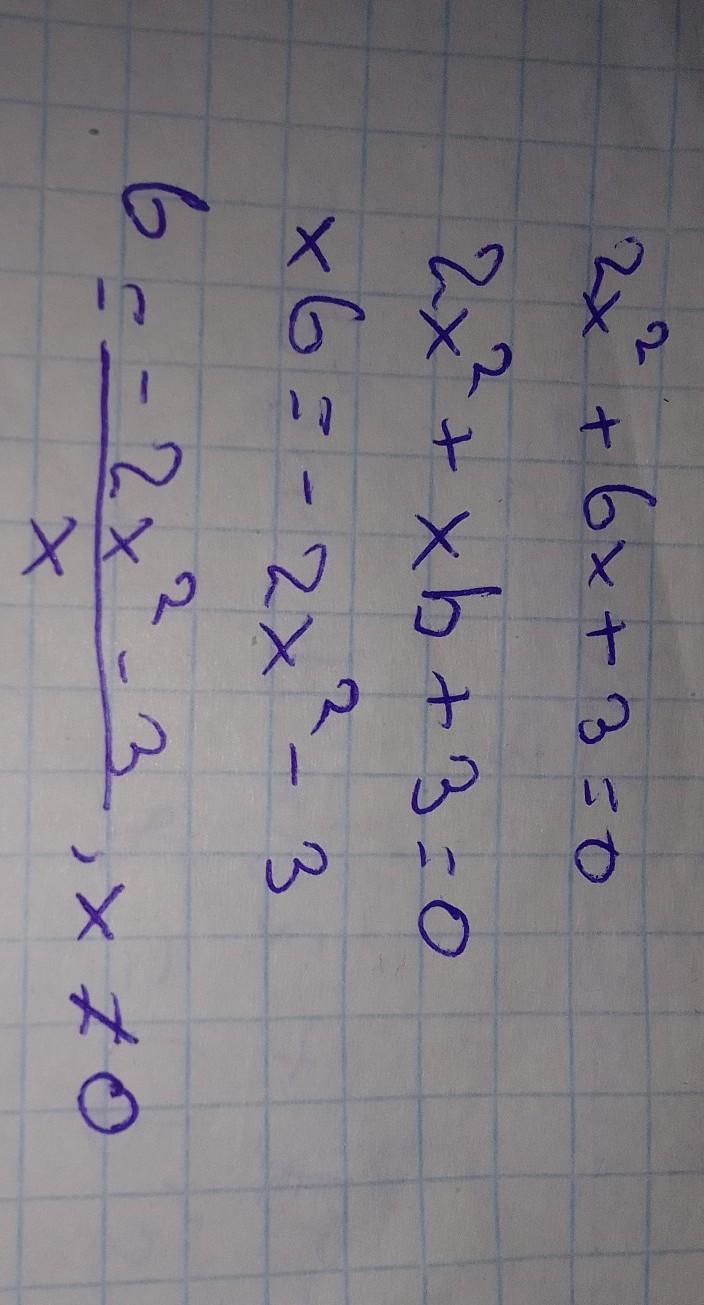 2x² + bx + 3 = 0
2x² + xb + 3 = 0
xb = - 2x² - 3
b = \frac{- 2x² - 3}{x}, x ≠ 0